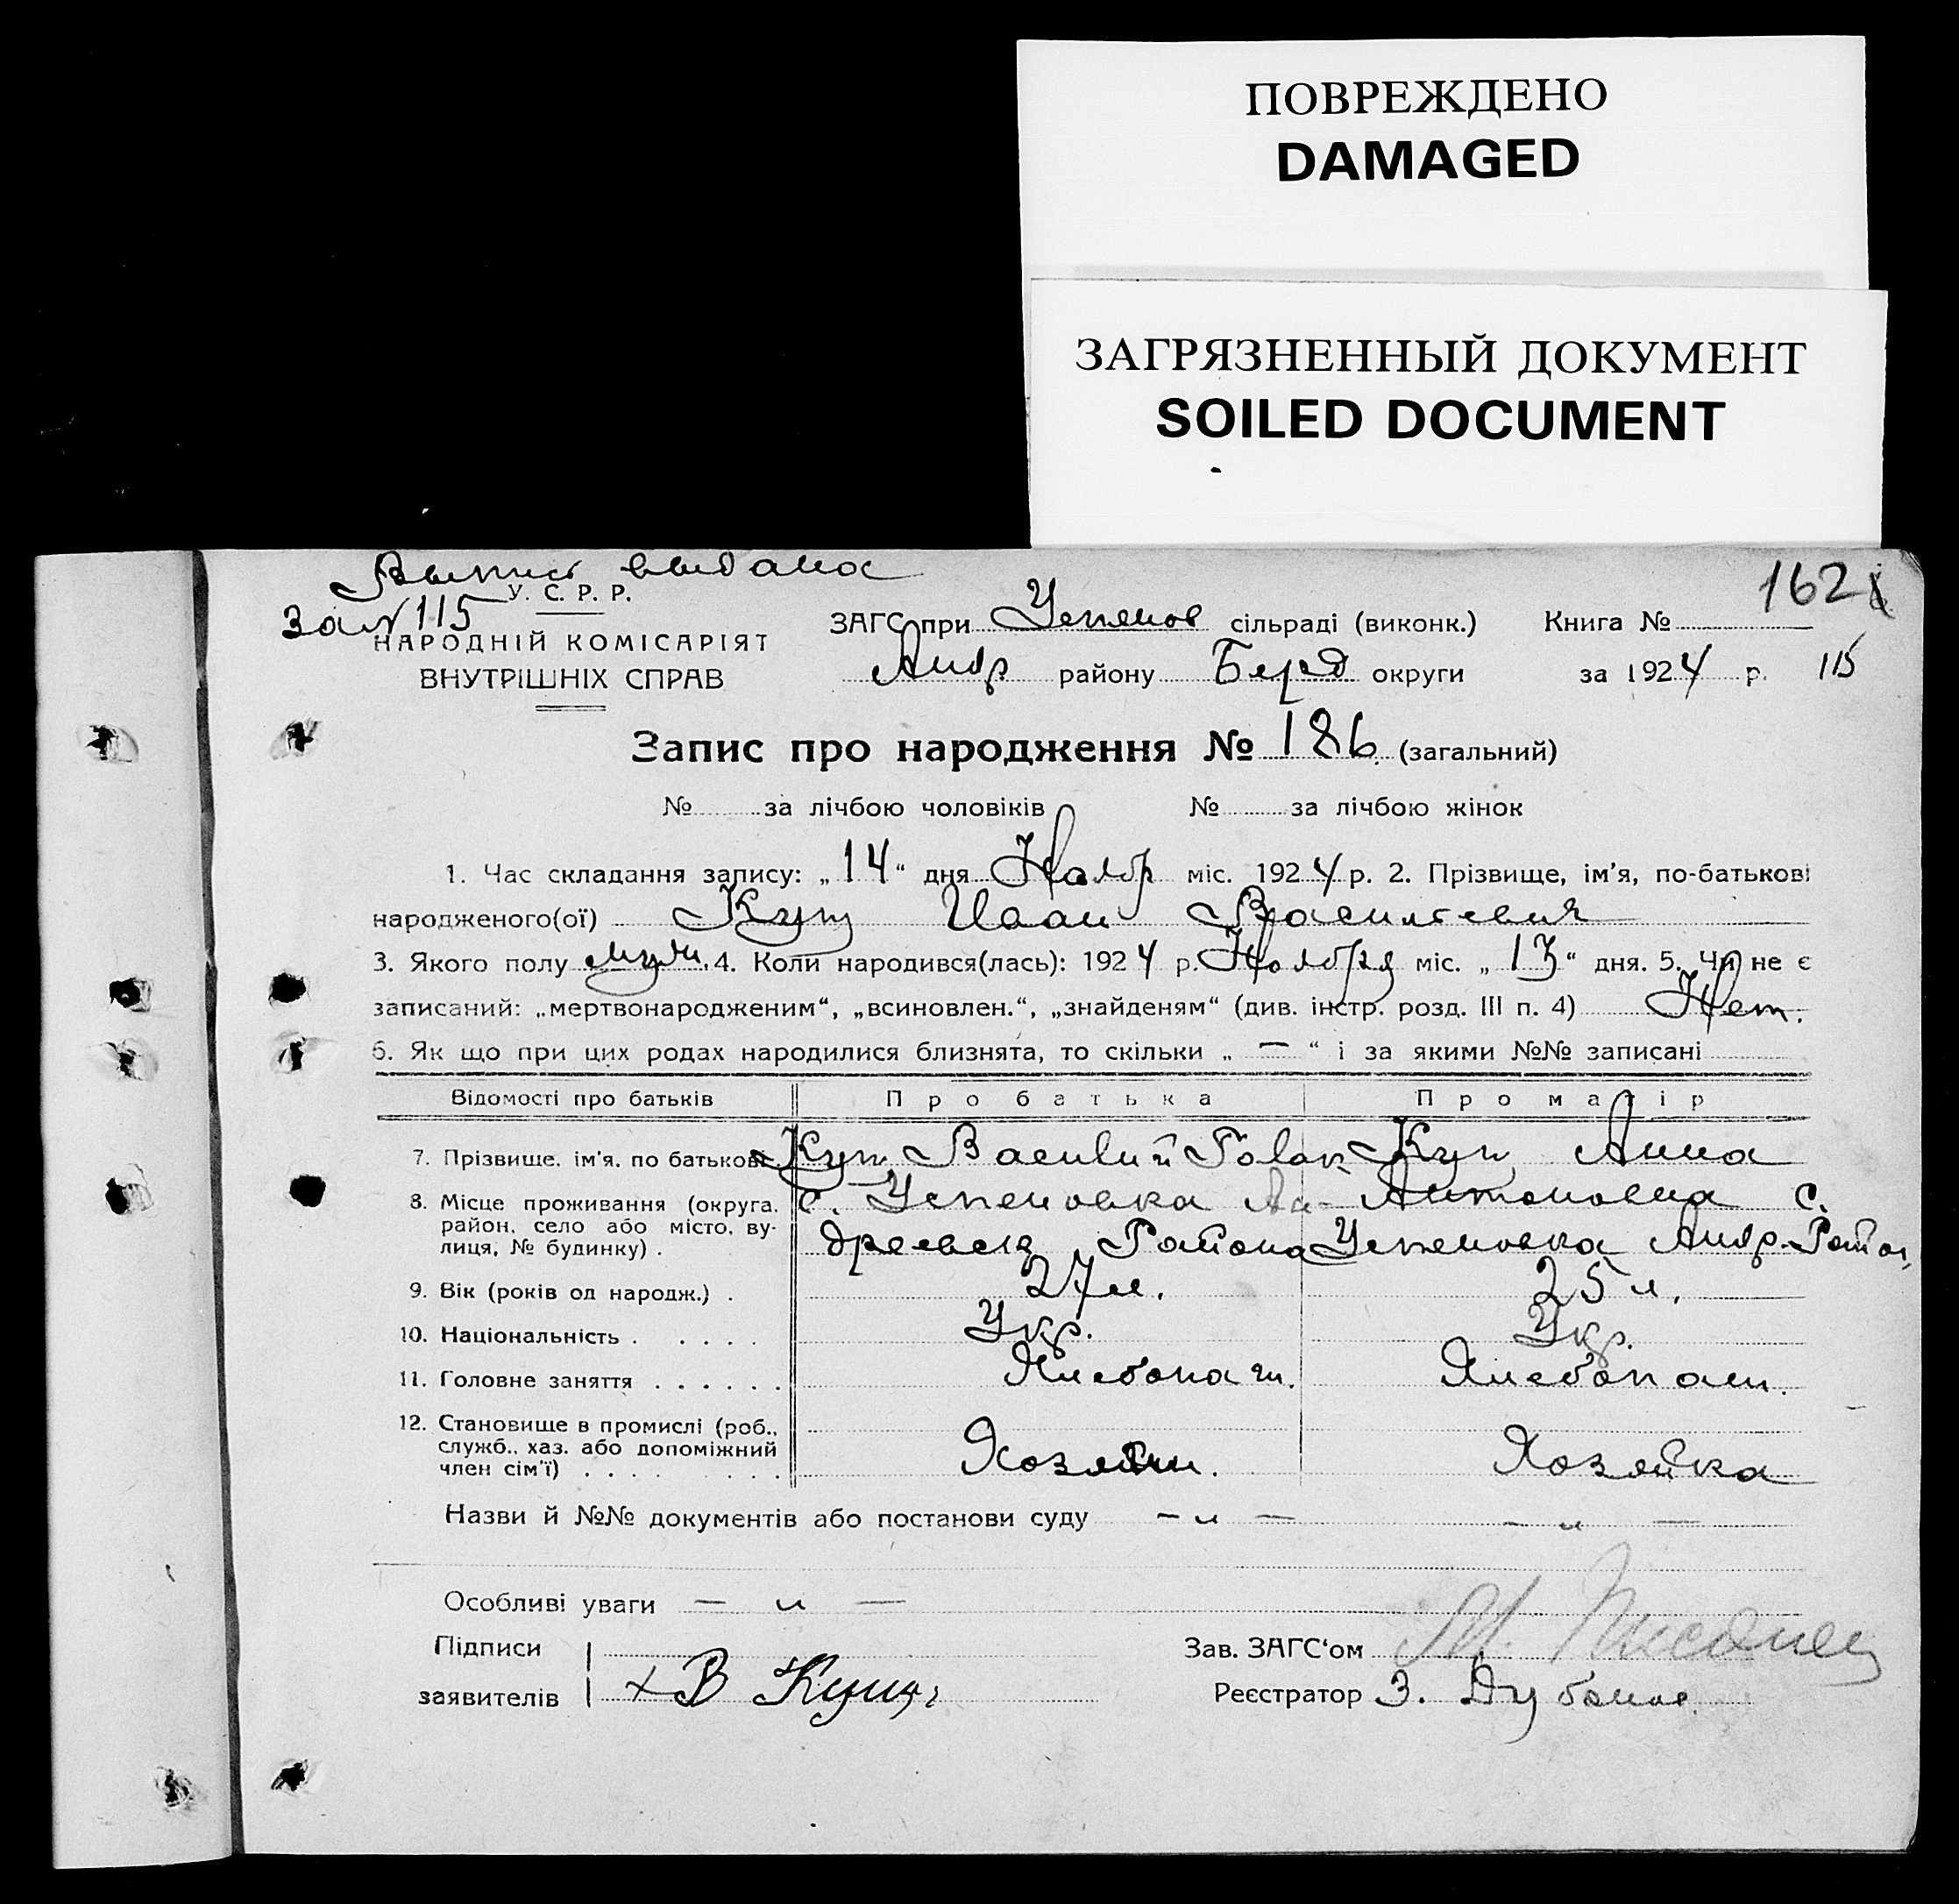 ПОВРЕЖДЕНО
DAMAGED
ЗАГРЯЗНЕННЫЙ ДОКУМЕНТ
SOILED DOCUMENT
Выпись выдана
за № 115
162
У. С. Р. Р.
НАРОДНІЙ КОМІСАРІЯТ
ВНУТРІШНІХ СПРАВ
ЗАГС при Успенов сільраді (виконк.) Книга №
Андр району Берд округи за 1924 р. 115
Запис про народження № 186 (загальний)
№ за лічбою чоловіків № за лічбою жінок
1. Час складання запису: „14“ дня Ноябр міс. 1924 р. 2. Прізвище, ім'я, по-батькові
народженого(ої) Кущ Иван Васильевич
3. Якого полу муж. 4. Коли народився(лась): 1924 р. Ноября міс. „13“ дня. 5. Чи не є
записаний: „мертвонародженим“, „всиновлен.“, „знайденям“ (див. інстр. розд. III п. 4) Нет.
6. Як що при цих родах народилися близнята, то скільки „—“ і за якими №№ записані
Відомості про батьків Про батька Про матір
7. Прізвище. ім'я. по батькові Кущ Василий Кущ Анна
8. Місце проживання (округа. с. Успеновка Ан- Антоновна с.
район. село або місто. ву-
лиця, № будинку) . дреевск Района Успеновка Андр. Район
9. Вік (років од народж.) . 27 л. 25 л.
10. Національність . . . . . Укр. Укр.
11. Головне заняття . . . . . . Хлебопаш. Хлебопаш.
12. Становище в промислі (роб..
служб.. хаз. або допоміжний
член сім'ї) . . . . . . . Хозяин. Хозяйка
Назви й №№ документів або постанови суду — „ — — „ —
Особливі уваги — „ —
Підписи
Зав. ЗАГС‘ом М.
заявителів + В Кущ
Реєстратор З.